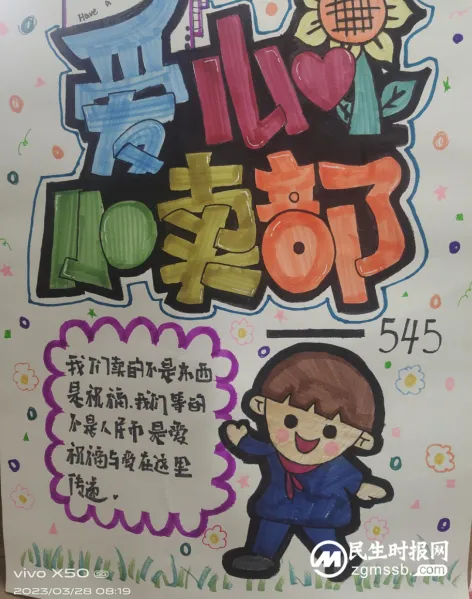 Have A
爱心
小卖部
545
我们卖的不是东西
是祝福，我们筹的
不是人民币是爱
祝福与爱在这里
传递。
vivo X50 5G
2023/03/28 08:19
民生时报网
zgmssb.com